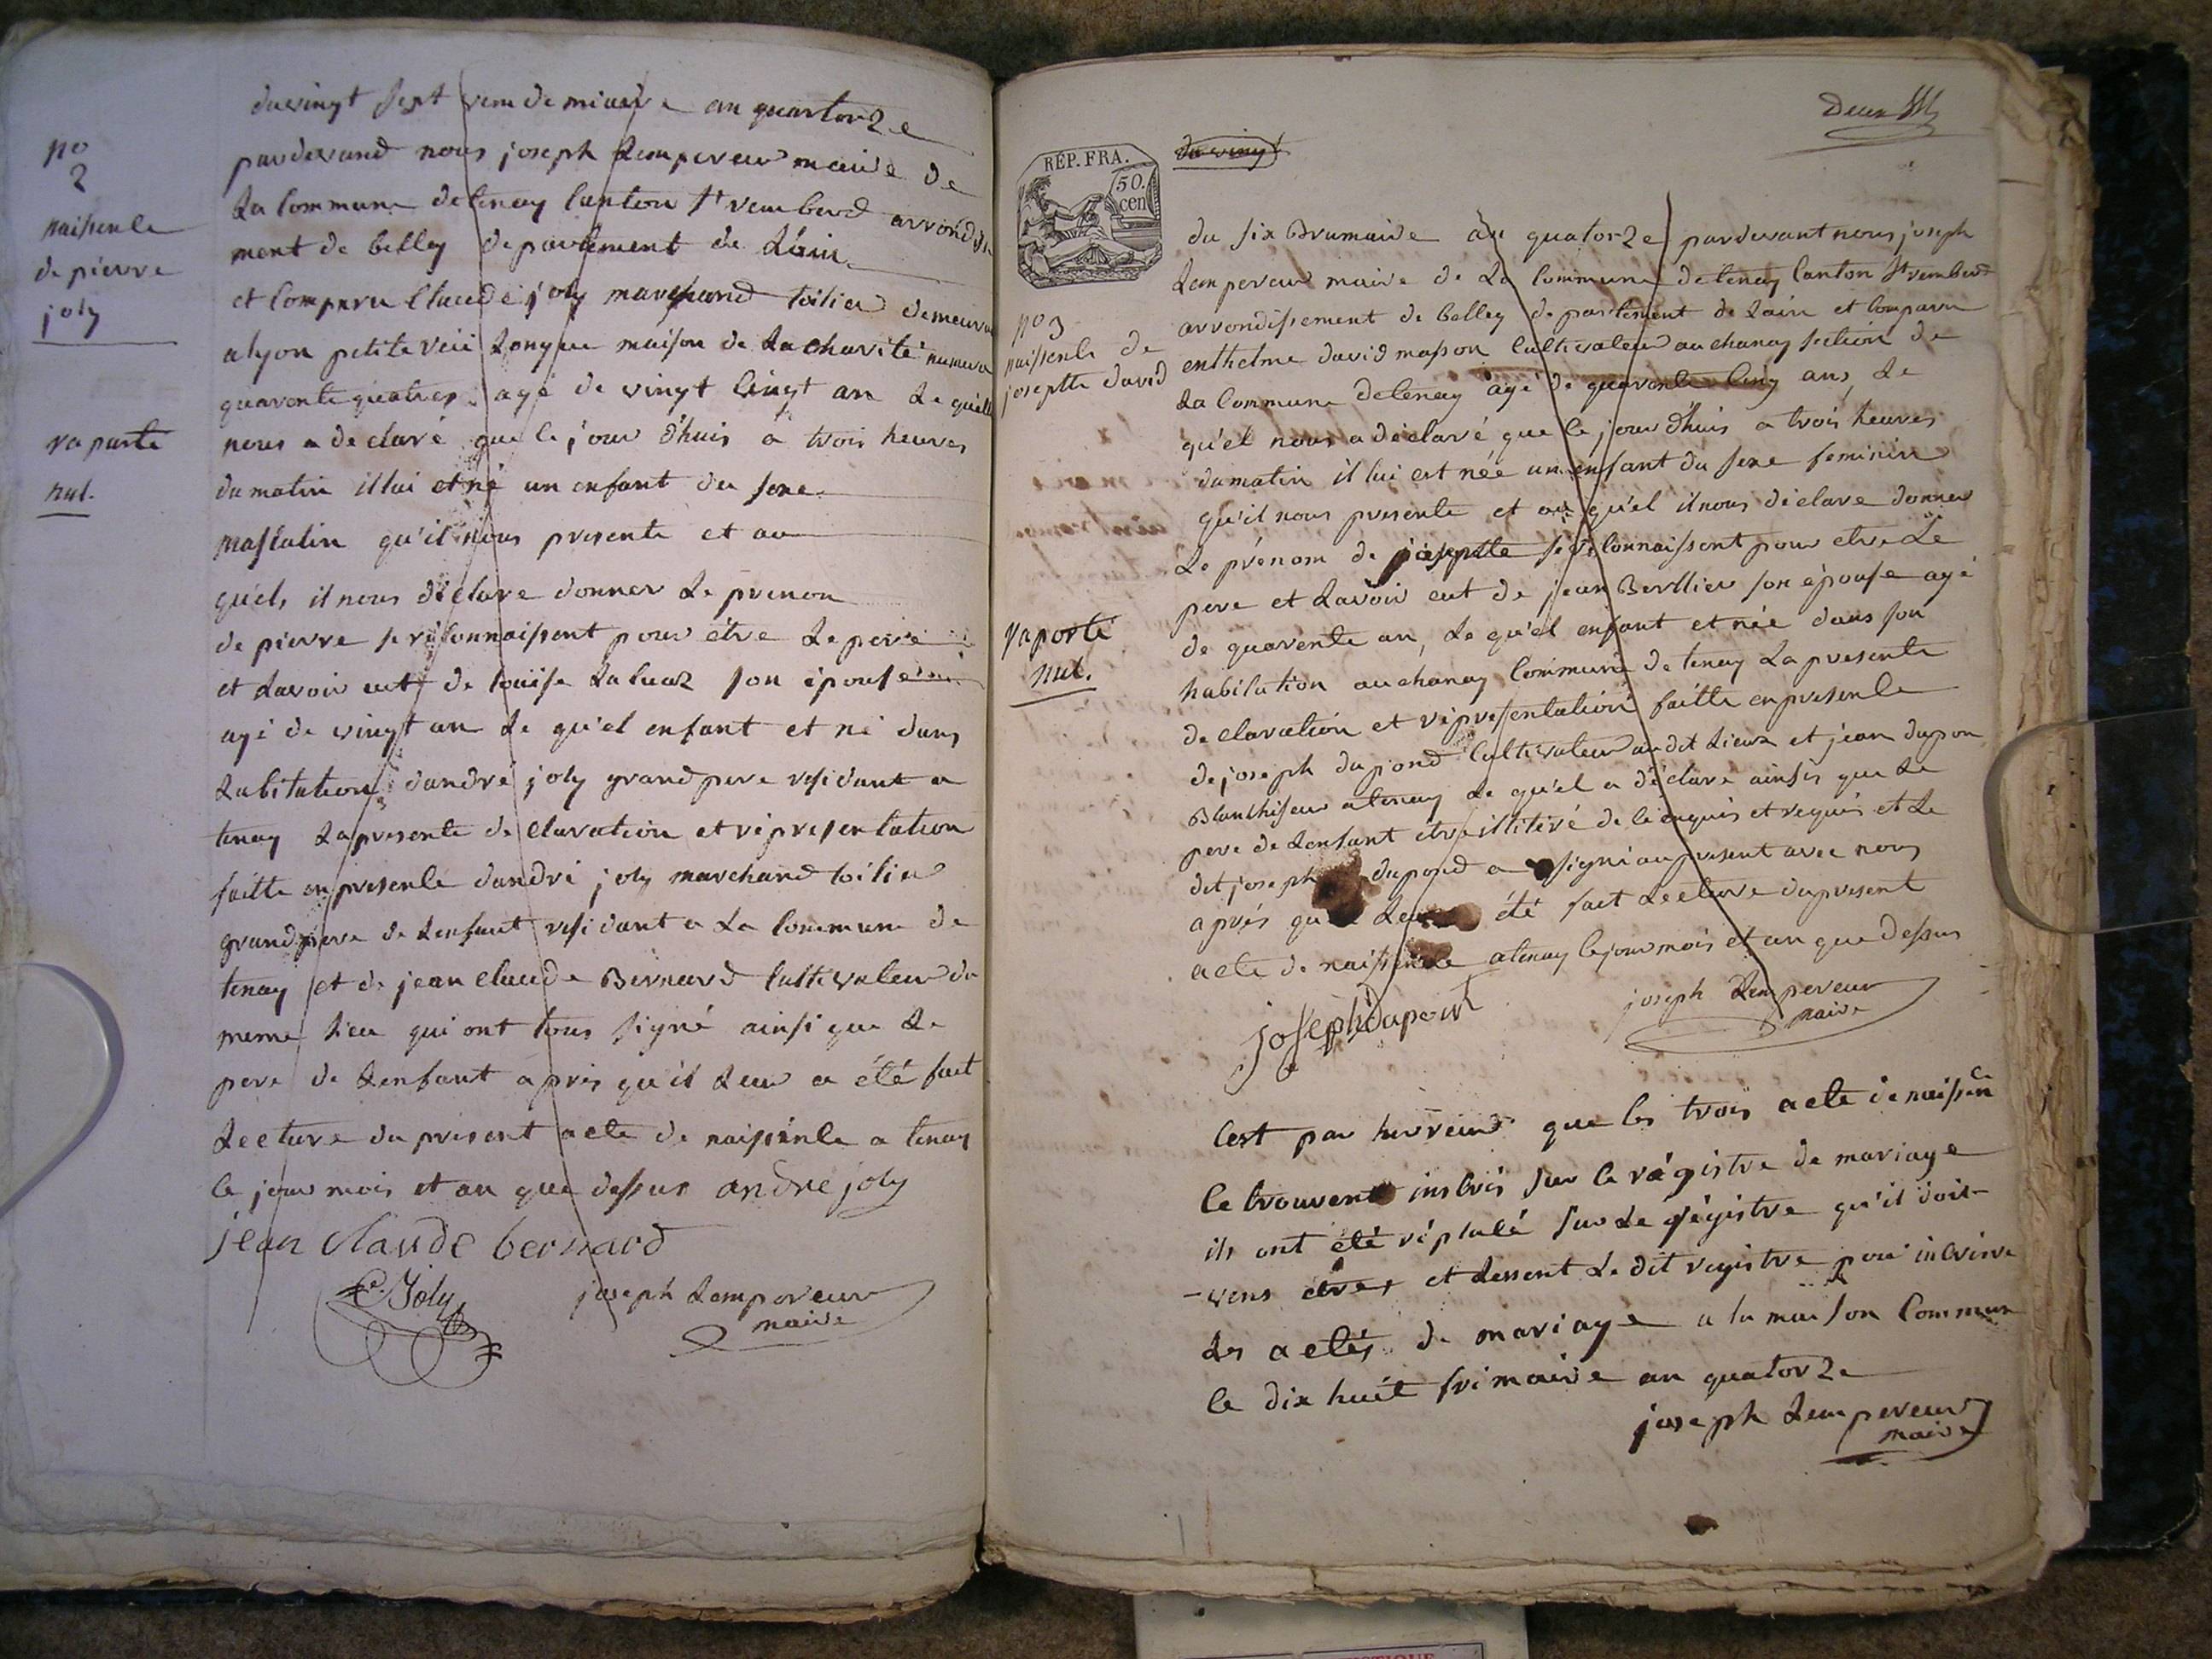 du vingt sept vendemiaire an quartorze
no
2
naissenle
de pierre
joly
raporte
nul.
pardevand nous joseph Lempereur maire de
La Commune detenay Canton st remberd arrondisse
ment de belley departement de Lain
et Comparu Claude joly marchand toilier demeura
alyon petite ruii Longue maison de La charité numero
quarente quatres agé de vingt Cinqt an Le quell
nous a declaré que le jour d'huis à trois heures
du matin il lui et né un enfant du sexe
masCulin qu'il nous presente et au
qu'els il nous déclare donner Le prenon
de pierre se réConnaissent pour être Le pere
et Lavoir eut de Louise Lalueaz son épouse
agé de vingt an Le qu'el enfant et né dans
Labitation dandré joly grand pere residant a
tenay La presente declaration et répresentation
faitte en presenle dandré joly marchand toilier
grand pere de Lenfant residant a La Commune de
tenay et de jean claude Bernard Cultivateur du
meme Lieu qui ont tous signé ainsi que Le
pere de Lenfant apris qu'il Leur a été fait
Lecture du present acte de naissenle a tenay
le jour mois et an que dessus andre joly
jean claude bernard
Ce. Joly
joseph Lempereur
maire
Deux
du vingt
RÉP. FRA.
50.
cen
no 3
naissenle de
josephte david
raporté
nul.
du six Brumaire an quatorze pardevant nous joseph
Lempereur maire de La Commune detenay Canton st rembert
arrondissement de belley departement de Lain et Comparu
enthelme david masson Cultivateur au chanay section de
La Commune detenay agé de quarente Cinq ans, Le
qu'el nous a déclaré que le jour d'huis a trois heures
du matin il lui est née un enfant du sexe feminin
qu'il nous presente et au qu'el il nous déclare donner
Le prénom de josephte se réConnaissent pour etre Le
pere et Lavoir eut de jean Berllier son épouse agé
de quarente an, Le qu'el enfant et née dans son
habitation au chanay Commune de tenay La presente
declaration et répresentation faitte en presenle
de joseph dupond Cultivateur au dit Lieux et jean dupon
Blanchiseur a tenay Le qu'el a déclaré ainsis que Le
pere de Lenfant etre illitéré de lé enquis et requis et Le
dit joseph dupond a signé au present avec nous
aprés qu Leur été fait Lecture du present
acte de naissenle a tenay le jour mois et an que dessus
joseph dupont
joseph Lempereur
maire
Cest par herreurd que les trois acte de naissen
Ce trouvent insCris sur le régistre de mariage
ils ont été réplalé sur Le régistre qu'il doi-
-vens etres et Lessent Le dit registre pour insCrire
Les actés de mariage a la maison Commun
le dix huit frimaire an quatorze
joseph Lempereur
maire